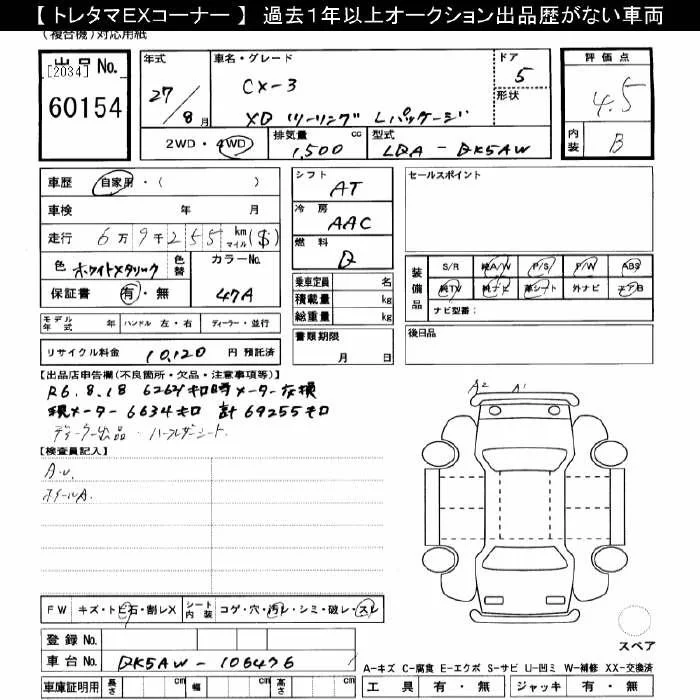 【 トレタマEXコーナー 】 過去1年以上オークション出品歴がない車両
(複合機)対応用紙
出品No.
[2034]
60154
年式
27/8月
車名・グレード
CX-3
XD ツーリング Lパッケージ
ドア
5
形状
評価点
4.5
内装
B
2WD・4WD
排気量
1,500 cc
型式
LDA - DK5AW
車歴 自家用・( )
車検 年 月
走行 6万9千255 km マイル ($)
色 ホワイトメタリック 色替
カラーNo.
47A
保証書 有・無
シフト
AT
冷房
AAC
燃料
D
乗車定員 名
積載量 kg
総重量 kg
書類期限
月 日
セールスポイント
装備品
S/R 純A/W P/S P/W ABS
純TV 純ナビ 革シート 外ナビ エアB
ナビ型番:
後日品
モデル年式 年 ハンドル 左・右 ディーラー・並行
リサイクル料金 10,120 円 預託済
【出品店申告欄(不良箇所・欠品・注意事項等)】
R6.8.18 62621キロ時メーター交換
現メーター 6634キロ 計 69255キロ
ディーラー出品・ハーフレザーシート.
【検査員記入】
A.U.
ホイールA.
A2 A1
FW キズ・トビ石・割レX シート内装 コゲ・穴・汚レ・シミ・破レ・スレ
登録No.
車台No. DK5AW - 106476
車庫証明用 長さ cm 幅 cm 高さ cm
スペア
A-キズ C-腐食 E-エクボ S-サビ U-凹ミ W-補修 XX-交換済
工具 有・無 ジャッキ 有・無